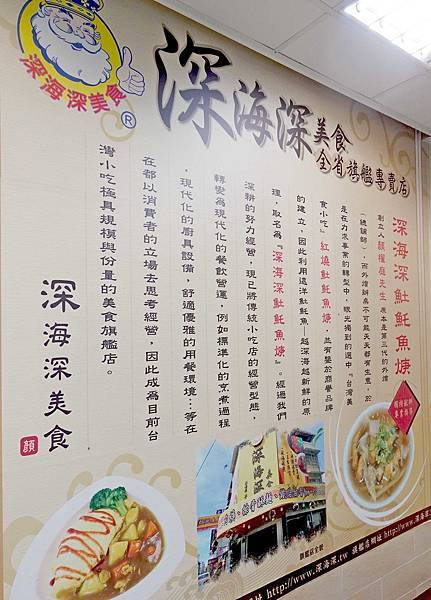 深海深美食
®
深海深美食
全省旗艦專賣店
深海深魠魠魚焿
創立人顏權庭先生原本是第三代的外燴
(總鋪師),而外燴辦桌不可能天天都有生意,於
是在力求事業的轉型中,眼光獨到的選中『台灣美
食小吃』紅燒魠魠魚焿,並有鑒於商譽品牌
的建立,因此利用遠洋魠魠魚—越深海越新鮮的原
理,取名為『深海深魠魠魚焿』。經過我們
深耕的努力經營,現已將傳統小吃店的經營型態,
轉變為現代化的餐飲營運,例如標準化的烹煮過程
,現代化的廚具設備,舒適優雅的用餐環境…等在
在都以消費者的立場去思考經營,因此成為目前台
灣小吃極具規模與份量的美食旗艦店。
深海深美食
顏
深海深
美食
旗艦店全觀
網址 http://www.深海深.tw 旗艦店網址 http://www.深海深